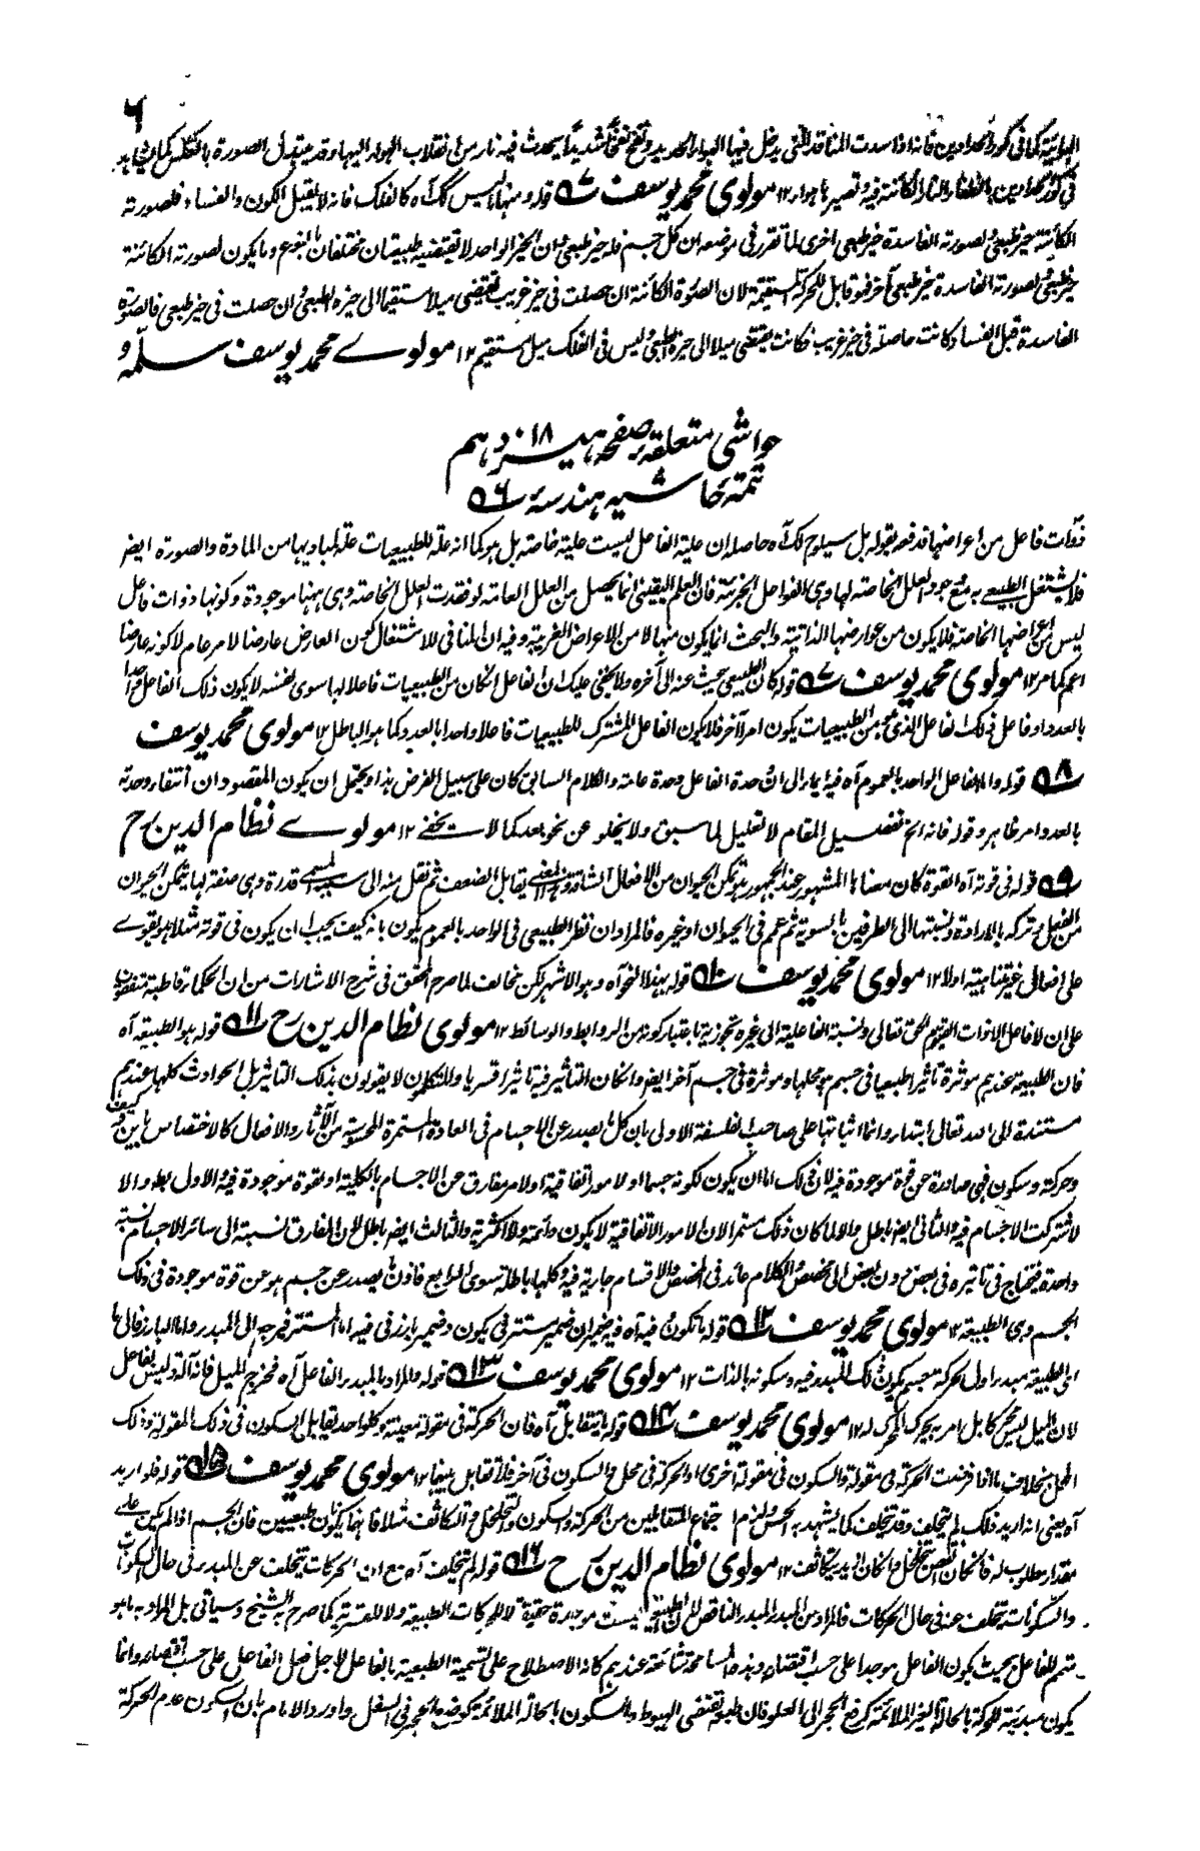 ٦
الهوائية كما فى كور الحدادين فانه اذا سدت المنافذ التى يدخل فيها الهواء الجديد ونفخ نفخا شديدا يحدث فيه نار من انقلاب الهواء اليها وقد يتبدل الصورة بالعكس كما يشاهد
فى كور الحدادين النار الكائنة فيه وتصير هواء ١٢ مولوى محمد يوسف ٥٧ قوله ومنها ما ليس كك آه كالفلك فانه لا يقبل الكون والفساد فلصورته
الكائنة حيز طبعى ولصورته الفاسدة حيز طبعى اخرى لما تقرر فى موضعه ان كل جسم فله حيز طبعى وان الحيز الواحد لا تقتضيه طبيعتان مختلفتان بالنوع وما يكون لصورته الكائنة
حيز طبعى ولصورته الفاسدة حيز طبعى آخر فهو قابل للحركة المستقيمة لان الصورة الكائنة ان حصلت فى حيز غريب تقتضى ميلا مستقيما الى حيزه الطبعى وان حصلت فى حيز طبعى فالصورة
الفاسدة قبل الفساد كانت حاصلة فى حيز غريب فكانت يقتضى ميلا الى حيزه الطبعى وليس فى الفلك ميل مستقيم ١٢ مولوے محمد يوسف سلمه
حواشى متعلقه صفحه هيزدهم ١٨
تتمة حاشيه هندسه ٥٦
ذوات فاعل من اعراضها فدفعه بقوله بل سيلوح لك آه حاصله ان علية الفاعل ليست علية خاصة بل هو كما انه علة للطبيعيات علة لمباديها من المادة والصورة ايضا
فلا يشتغل الطبيعے به مع وجود العلل الخاصة لها وهى الفواعل الجزئية فان العلم اليقينى انما يحصل من العلل العامة لو فقدت العلل الخاصة وهى ههنا موجودة وكونها ذوات فاعل
ليس من اعراضها الخاصة فلا يكون من عوارضها الذاتية والبحث انما يكون منها لا من الاعراض الغريبة وفيه ان المنافى للاشتغال كون العارض عارضا لامر عام لا كونه عارضا
اعم كما مر ١٢ مولوى محمد يوسف ٥٧ قوله كان الطبيعى يبحث عنه الى آخره ولا يخفى عليك ان الفاعل ان كان من الطبيعيات فاعلا لها سوى لنفسه لا يكون ذلك الفاعل واحدا
بالعدد او فاعل فذلك الفاعل الذى هو من الطبيعيات يكون امرا آخر فلا يكون الفاعل المشترك للطبيعيات فاعلا واحدا بالعدد كما هو الباطل ١٢ مولوى محمد يوسف
٥٨ قوله واما الفاعل الواحد بالعموم آه فيه ايماء الى ان وحدة الفاعل وحدة عامة والكلام السابق كان على سبيل الفرض هذا ويحتمل ان يكون المقصود ان انتفاء وحدته
بالعدد امر ظاهر وقوله فانه الخ تفصيل المقام لا تعليل لما سبق ولا يخلو عن نحو بعد كما لا يخفے ١٢ مولوے نظام الدين رح
٥٩ قوله فى قوته آه القوة كان معناها المشهور عند الجمهور هو تمكن الحيوان من الافعال الشاقة يقابل الضعف ثم نقل منه الى سببه المسمى قدرة وهى صفة لها يتمكن الحيوان
من الفعل وتركه بالارادة ونسبتها الى الطرفين بالسوية ثم عمم فى الحيوان او غيره فالمراد ان نظر الطبيعى فى الواحد بالعموم يكون بانه كيف يجب ان يكون فى قوته مثلا هو يقوى
على افعال غير متناهية اولا ١٢ مولوى محمد يوسف ٥١٠ قوله بهذا النحو آه وهو الاشهر لكن مخالف لما صرح المحقق فى شرح الاشارات من ان الحكماء قاطبة متفقون
على ان لا فاعل الا ذات القيوم الحق تعالى ونسبة الفاعلية الى غيره تجوزية باعتبار كونه من الروابط والوسائط ١٢ مولوى نظام الدين رح ٥١١ قوله هو الطبيعة آه
فان الطبيعة عندهم موثرة تاثيرا طبيعيا فى جسم هو محلها وموثرة فى جسم آخر ايضا وان كان التاثير فيه تاثيرا قسريا والمتكلمون لا يقولون بذلك التاثير بل الحوادث كلها عندهم
مستندة الى الله تعالى ابتداء وانما اثباتها على صاحب الفلسفة الاولى بان كل ما يصدر عن الاجسام فى العادة المستمرة المحسوسة من الآثار والافعال كالاختصاص باين وكيف
وحركة وسكون فهى صادرة عن قوة موجودة فيه لان ذلك اما ان يكون لكونه جسما او لامور اتفاقية او لامر مفارق عن الاجسام بالكلية او لقوة موجودة فيه والاول باطل والا
لاشتركت الاجسام فيه والثانى ايضا باطل والا لما كان ذلك مستمرا لان الامور الاتفاقية لا يكون دائمة ولا اكثرية والثالث ايضا باطل لان المفارق نسبته الى سائر الاجسام نسبة
واحدة فيحتاج فى تاثيره فى بعض دون بعض الى مخصص والكلام عائد فى المخصص والاقسام جارية فيه وكلها باطلة سوى الرابع فاذن ما يصدر عن جسم هو عن قوة موجودة فى ذلك
الجسم وهى الطبيعة ١٢ مولوى محمد يوسف ٥١٢ قوله ما تكون فيه آه فيه ضميران ضمير مستتر فى يكون وضمير بارز فى فيه اما المستتر فيرجع الى المبدء واما البارز فالى ما
اى الطبيعة مبدء اول لحركة جسم يكون ذلك المبدء فيه وسكونه بالذات ١٢ مولوى محمد يوسف ٥١٣ قوله والمراد بالمبدء الفاعل آه فخرج الميل فانه آلة وليس بفاعل
لان الميل ليس محركا بل امر به يحرك المحرك له ١٢ مولوى محمد يوسف ٥١٤ قوله يتقابل آه فان الحركة فى مقولة معينة وكل واحد يقابل السكون فى ذلك المقولة وذلك
المحل بخلاف ما اذا فرضت الحركة فى مقولة والسكون فى مقولة اخرى او الحركة فى محل والسكون فى آخر فلا تقابل بينهما ١٢ مولوى محمد يوسف ٥١٥ قوله فلو اريد
آه يعنى انه اريد ذلك لم يتخلف وقد يتخلف كما يشهد به الحس ولزم اجتماع المتقابلين من الحركة والسكون والتخلخل والتكاثف مثلا فانهما يكونان طبيعيين فان الجسم اذا لم يكن على
مقدار مطلوب له فان كان انقص يتخلخل وان كان ازيد يتكاثف ١٢ مولوى نظام الدين رح ٥١٦ قوله لم يتخلف آه مع ان الحركات يتخلف عن المبدء فى حال السكونات
والسكونات يتخلف عنه فى حال الحركات فالمراد من المبدء المبدء الناقص لان الطبيعة ليست موجدة حقيقة لا للحركات الطبيعية ولا للقسرية كما صرح به الشيخ وسياتى بل المراد به ما هو
متمم للفاعل بحيث يكون الفاعل موجدا على حسب اقتضائه وهذه المسامحة شائعة عندهم كانه الاصطلاح على تسمية الطبيعة بالفاعل لاجل فعل الفاعل على حسب اقتضائه وانما
يكون مبدئية للحركة بالحالة الغير الملائمة كرفع الحجر الى العلو فان طبيعته تقتضى الهبوط والسكون بالحالة الملائمة كوضع الحجر فى السفل واورد الامام بان السكون عدم الحركة